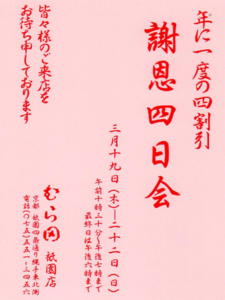 年に一度の四割引
謝恩四日会
三月十九日（木）ー二十二日（日）
午前十時三十分〜午後七時まで
最終日は午後六時まで
むら田 祇園店
京都・祇園四条通り縄手東北側
電話（〇七五）五五一ー三四五六
皆々様のご来店を
お待ち申しております